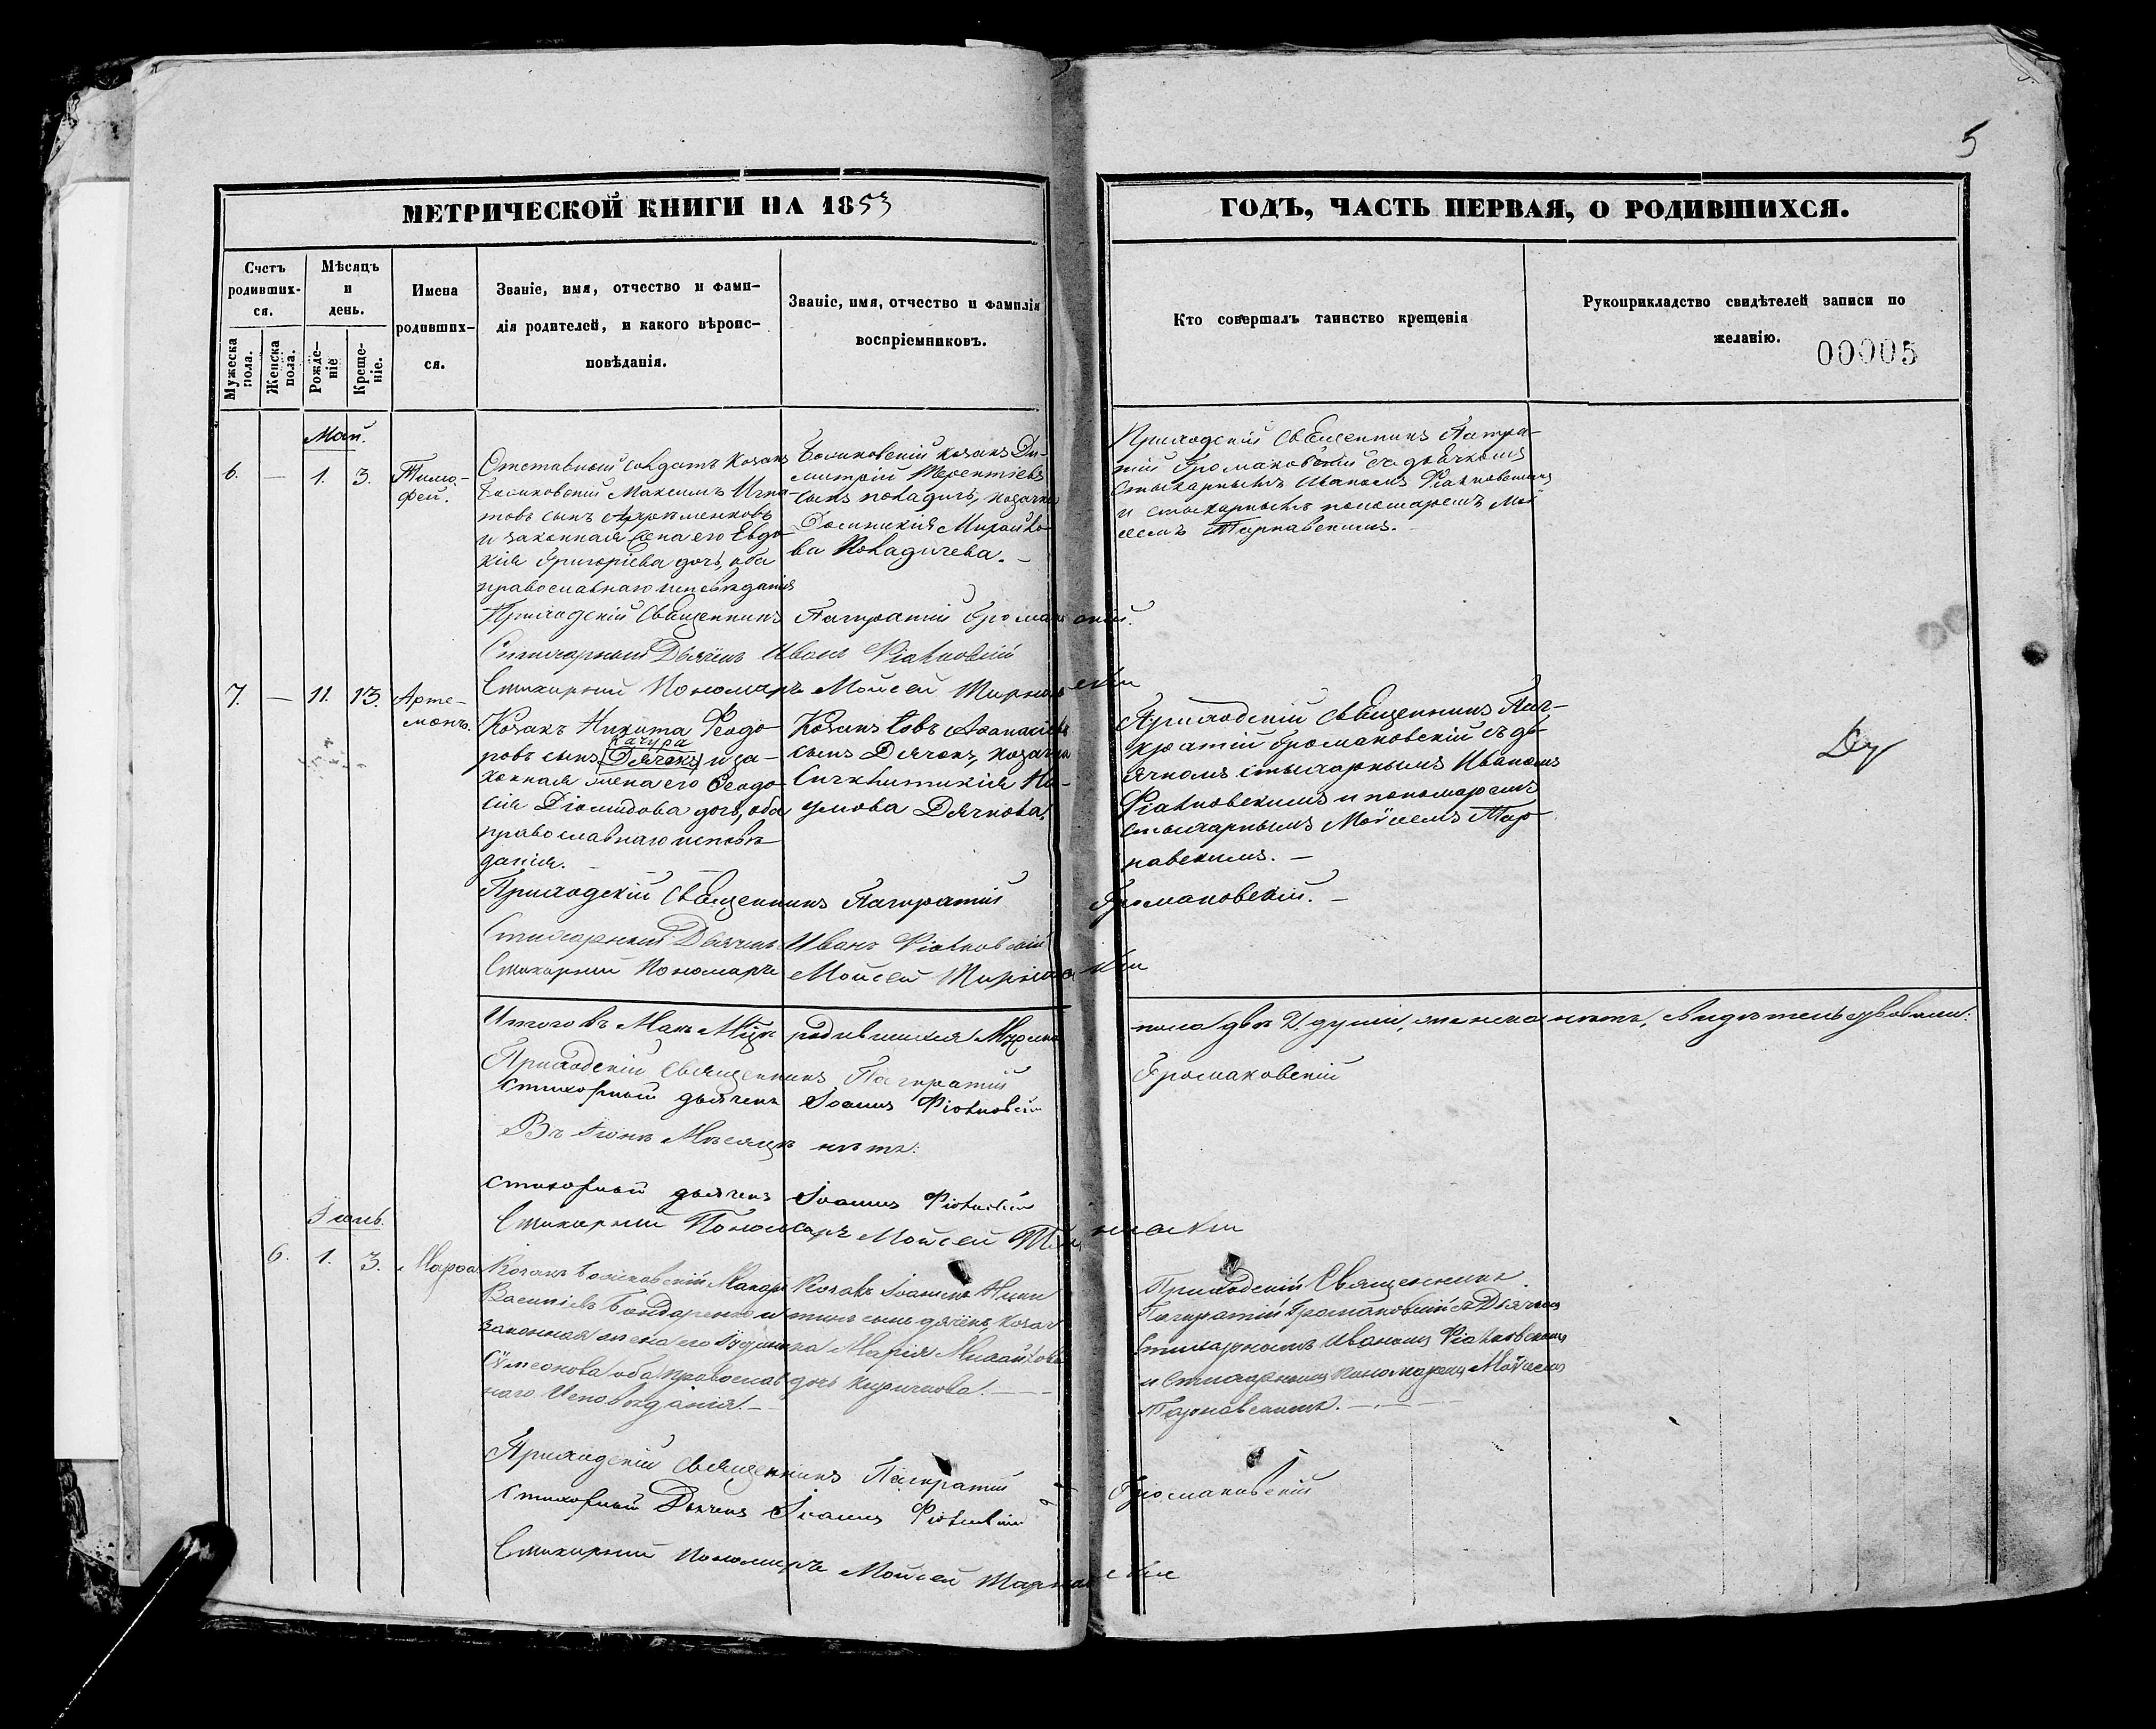 5
МЕТРИЧЕСКОЙ КНИГИ НА 1853
ГОДЪ, ЧАСТЬ ПЕРВАЯ, О РОДИВШИХСЯ.
Счетъ
родивших-
ся.
Мужеска
пола.
Женска
пола.
Мѣсяцъ
и
день.
Рожде-
ніе
Креще-
ніе.
Имена
родивших-
ся.
Званіе, имя, отчество и фами-
лія родителей, и какого вѣроис-
повѣданія.
Званіе, имя, отчество и фамилія
воспріемниковъ.
Кто совершалъ таинство крещенія
Рукоприкладство свидѣтелей записи по
желанію.
00005
Май.
6. — 1. 3.
Тимо-
фей.
Отставный солдатъ козакъ
Максимъ Игна-
товъ сынъ
и законная жена его Евдо-
кія Григоріева дочь, оба
православнаго исповѣданія
козакъ Ди-
митрій Терентіевъ
сынъ козачка
Михайло-
ва
Приходскій Священникъ Пагкра-
тій Громаковскій съ дьячкомъ
стихарнымъ Иваномъ
и стихарнымъ пономаремъ Мой
сеемъ Тарнавскимъ.
Приходскій Священникъ Пагкратій Громаковскій.
Стихарный Дьячекъ Иванъ
Стихарный Пономарь Мойсей Тарнавскій
7. — 11. 13.
Арте-
монъ.
Козакъ Никита Феодо-
ровъ сынъ Качура
(Дячокъ) и за-
конная жена его Феодо-
сія Діомидова дочь, оба
православнаго исповѣ-
данія.
Козакъ Іовъ Афанасіевъ
сынъ Дячокъ, козачка
На-
умова Дячкова.
Приходскій Священникъ Паг-
кратій Громаковскій съ дь-
ячкомъ стихарнымъ Иваномъ
и пономаремъ
стихарнымъ Мойсеемъ Тар-
навскимъ. —
Приходскій Священникъ Пагкратій Громаковскій. —
Стихарный Дьячекъ Иванъ
Стихарный Пономарь Мойсей Тарнавскій
Итого въ Маѣ Мцѣ родившихся Мужска пола двѣ 2. души, женска нѣтъ, свидѣтельствовали:
Приходскій Священникъ Пагкратій Громаковскій
Стихарный дьячекъ Іоаннъ
Въ Іюнѣ Мѣсяцѣ нѣтъ.
Стихарный дьячекъ Іоаннъ
Стихарный Пономарь Мойсей Тарнавскій
Іюль.
6. 1. 3.
Марфа
Козакъ Макаръ
Васильевъ Бондаренко и
законная жена его
Сѵмеонова оба православ
наго Исповѣданія. —
Козакъ Іоаннъ Ники
тинъ сынъ дячекъ, козач
ка Марія Михайлова
дочь Киричкова. —
Приходскій Священникъ
Пагкратій Громаковскій съ Дьячкомъ
Стихарнымъ Иваномъ
и Стихарнымъ Пономаремъ Мойсеемъ
Тарнавскимъ. —
Приходскій Священникъ Пагкратій Громаковскій
Стихарный Дьячекъ Іоаннъ
Стихарный Пономарь Мойсей Тарнавскій